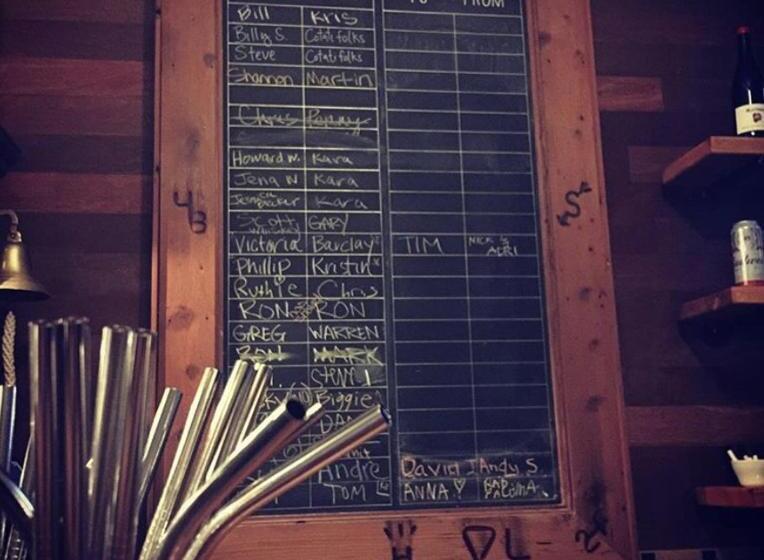 TO FROM
Bill Kris
Billy S. Cotati folks
Steve Cotati folks
Shannon Martin
Chris Penny
Howard W. Kara
Jena W Kara
Kara
Scott GARY
Victoria Barclay TIM NICK &
Phillip Kristin
Ruthie Chris
RON RON
GREG WARREN
RON MARK
Steve
Biggie
Andre David Andy S.
TOM ANNA